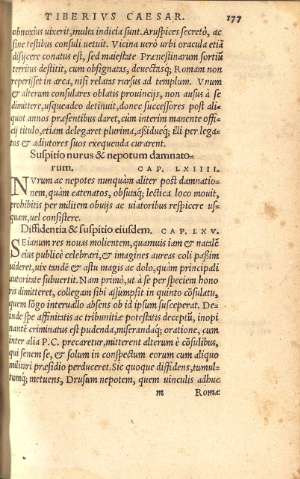 TIBERIVS CAESAR. 177
obnoxius uixerit, mulex indicia sunt. Aruspices secretò, ac
sine testibus consuli uetuit. Vicina uerò urbi oracula etiā
disijcere conatus est, sed maiestate Prænestinarum sortiū
territus destitit, cum obsignatas, deuectasq; Romam non
reperisset in arca, nisi relata rursus ad templum. Vnum
& alterum consulares oblatis prouincijs, non ausus à se
dimittere, usqueadeo detinuit, donec successores post ali
quot annos præsentibus daret, cùm interim manente offi
cij titulo, etiam delegaret plurima, assidueq; illi per lega
tos & adiutores suos exequenda curarent.
Suspitio nurus & nepotum damnato-
rum. CAP. LXIIII.
NVrum ac nepotes nunquam aliter post damnatio-
nem, quàm catenatos, obsutaq; lectica loco mouit,
prohibitis per militem obuijs ac uiatoribus respicere us-
quam, uel consistere.
Diffidentia & suspitio eiusdem. CAP. LXV.
SEianum res nouas molientem, quamuis iam & natalē
eius publicè celebrari, & imagines aureas coli passim
uideret, uix tandē & astu magis ac dolo, quàm principali
autoritate subuertit. Nam primò, ut à se per speciem hono
ra dimitteret, collegam sibi assumpsit in quinto cōsulatu,
quem lōgo interuallo absens ob id ipsum susceperat. De-
inde spe affinitatis ac tribunitiæ potestatis deceptū, inopi
nantē criminatus est pudenda, miserandaq; oratione, cum
inter alia P.C. precaretur, mitterent alterum è cōsulibus,
qui senem se, & solum in conspectum eorum cum aliquo
militari præsidio perduceret. Sic quoque diffidens, tumul-
tumq; metuens, Drusum nepotem, quem uinculis adhuc
m Romæ